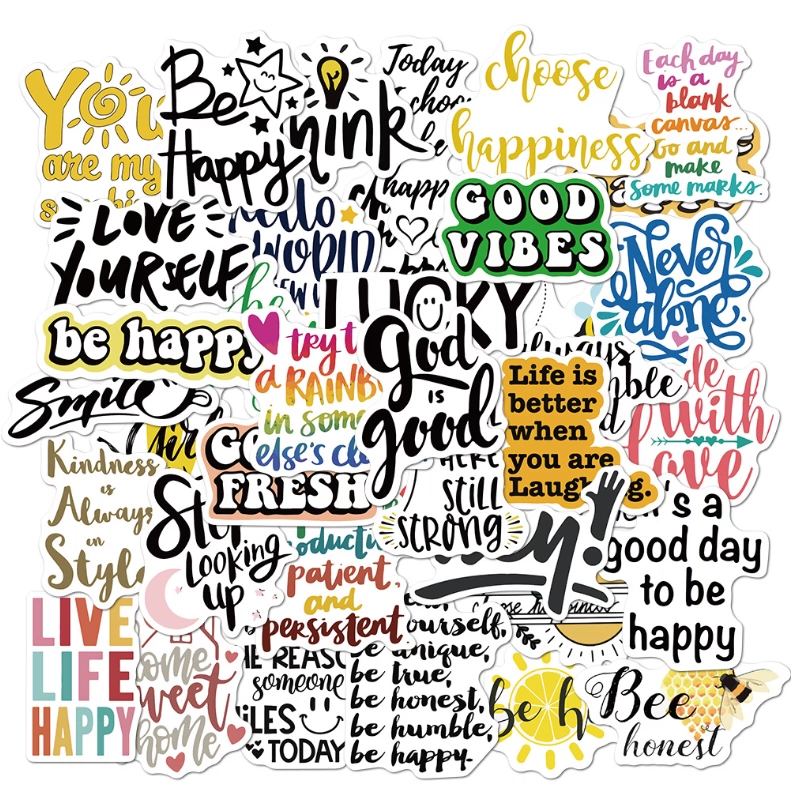 You
are my
Be
Happy
hink
Today
choose
happiness
Each day
is a
blank
canvas...
Go and
make
some marks.
LOVE
YOURSELF
WORLD
happ
GOOD
VIBES
Never
alone.
be happy
LUCKY
try t
a RAINB
in some
else's cl
God
IS
good
always
Life is
better
when
you are
Laughing.
de
with
love
Smile
GO
FRESH
Kindness
is
Always
in
Style
Stop
LOOKING
UP
HERE
still
STRONG
ey!
It's a
good day
to be
happy
oductiv
patient,
and
persistent
LIVE
LIFE
HAPPY
ome
weet
home
HE REASO
someone
iLES
TODAY
ourself,
be unique,
be true,
be honest,
be humble,
be happy.
choose happiness
be h
Bee
honest